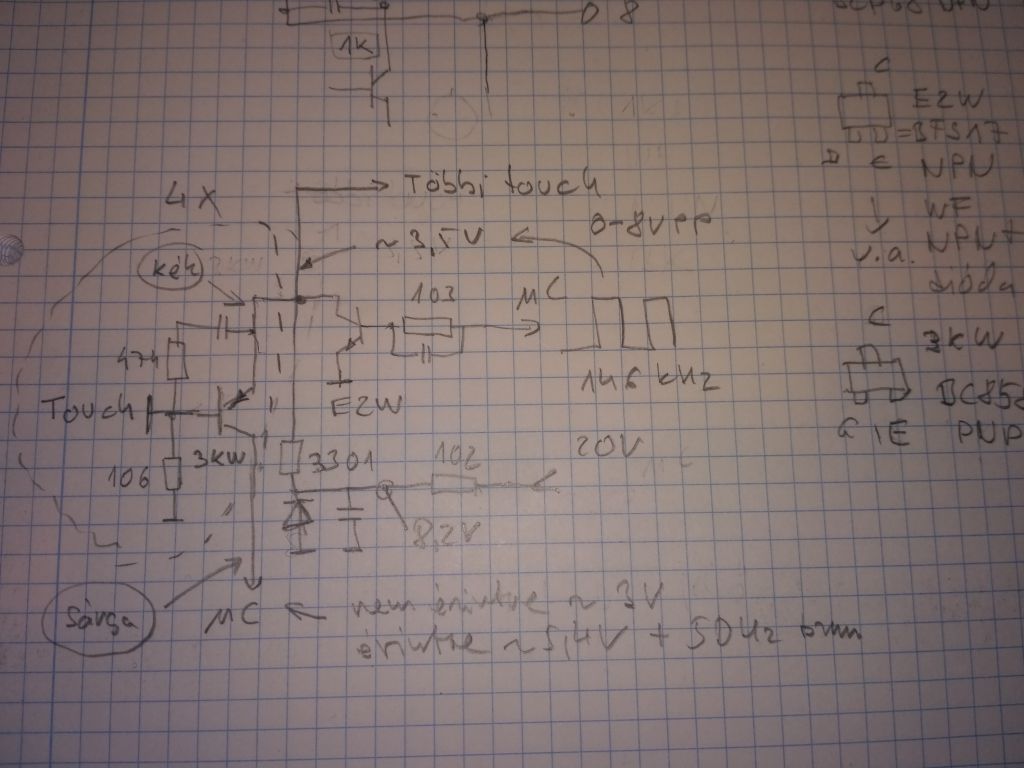 0 8
1K
C
E2W
= BFS17
B E NPN
4X
Többi touch
~ 3,5V
0-8VPP
v.a.
NPN +
dióda
kék
103
MC
C
3KW
474
146 kHz
Touch
E2W
PNP
3KW
3301
102
20V
106
8,2V
Sárga
MC
nem érintve ~ 3V
érintve ~ 5,4V + 50Hz